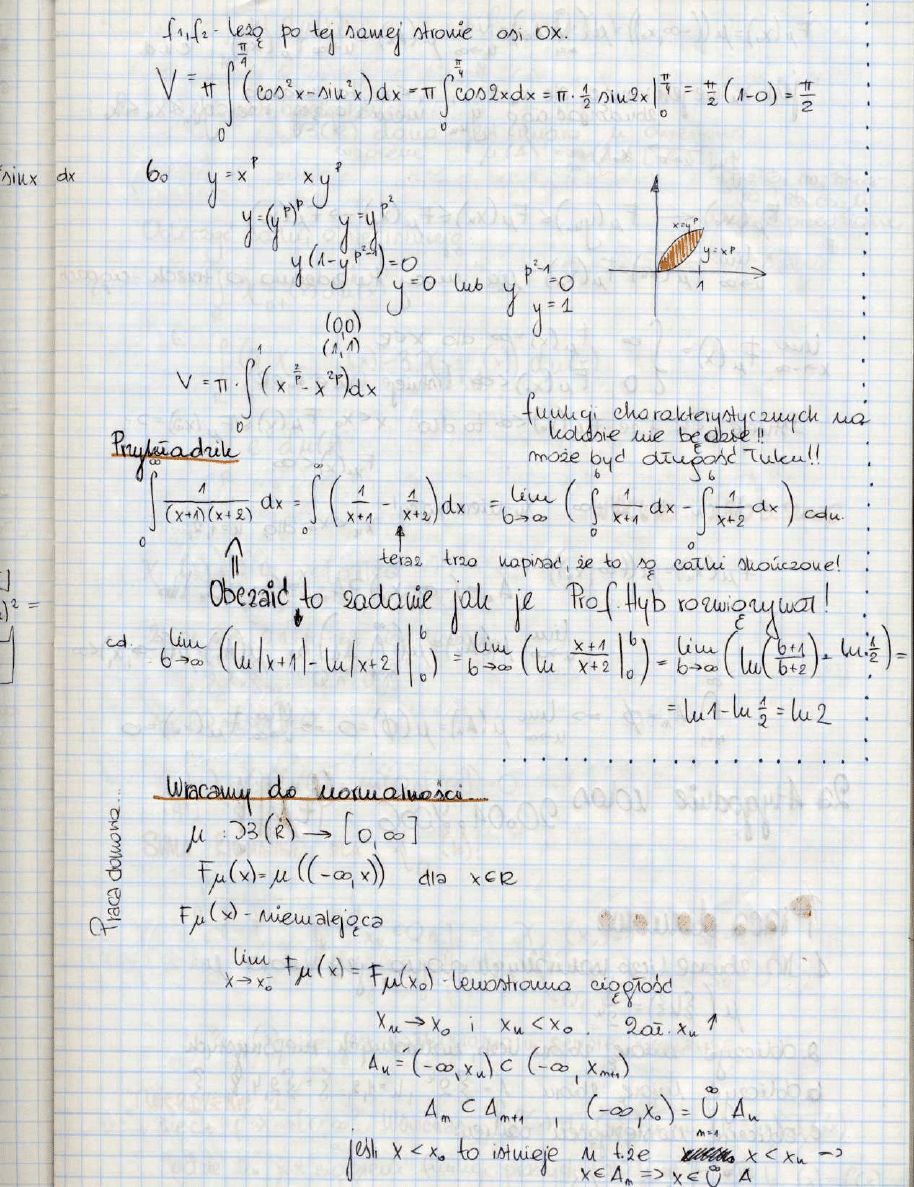 f₁,f₂ - leżą po tej samej stronie osi OX.
V = π ∫₀^{π/4} (cos²x - sin²x) dx = π ∫₀^{π/4} cos2x dx = π · 1/2 sin2x |₀^{π/4} = π/2 (1-0) = π/2
sinx dx
6. y = x^p x y^p
y = (y^p)^p y = y^{p²}
y(1 - y^{p²-1}) = 0
y = 0 lub y^{p²-1} = 0
y = 1
x = y^p
y = x^p
1
(0,0)
(1,1)
V = π · ∫₀¹ (x^{2/p} - x^{2p}) dx
funkcji charakterystycznych na
kolosie nie będzie!!
może być długość łuku!!
Przykładzik
∫₀^∞ 1/((x+1)(x+2)) dx = ∫₀^∞ (1/(x+1) - 1/(x+2)) dx = lim_{b→∞} (∫₀^b 1/(x+1) dx - ∫₀^b 1/(x+2) dx) cdn.
teraz trza napisać, że to są całki skończone!
Obczaić to zadanie jak je Prof. Hyb rozwiązywał!
cd. lim_{b→∞} (ln|x+1| - ln|x+2| |₀^b) = lim_{b→∞} (ln (x+1)/(x+2) |₀^b) = lim_{b→∞} (ln((b+1)/(b+2)) - ln 1/2) =
= ln1 - ln 1/2 = ln2
Praca domowa...
Wracamy do normalności...
μ : B(R) → [0,∞]
Fμ(x) = μ((-∞,x)) dla x∈R
Fμ(x) - niemalejąca
lim_{x→x₀⁻} Fμ(x) = Fμ(x₀) - lewostronna ciągłość
xₙ → x₀ i xₙ < x₀. Zał. xₙ ↑
Aₙ = (-∞,xₙ) ⊂ (-∞, xₙ₊₁)
Aₙ ⊂ Aₙ₊₁ , (-∞,x₀) = ⋃_{n=1}^∞ Aₙ
jeśli x < x₀ to istnieje n t.że x < xₙ =>
x∈Aₙ => x∈ ⋃^∞ A